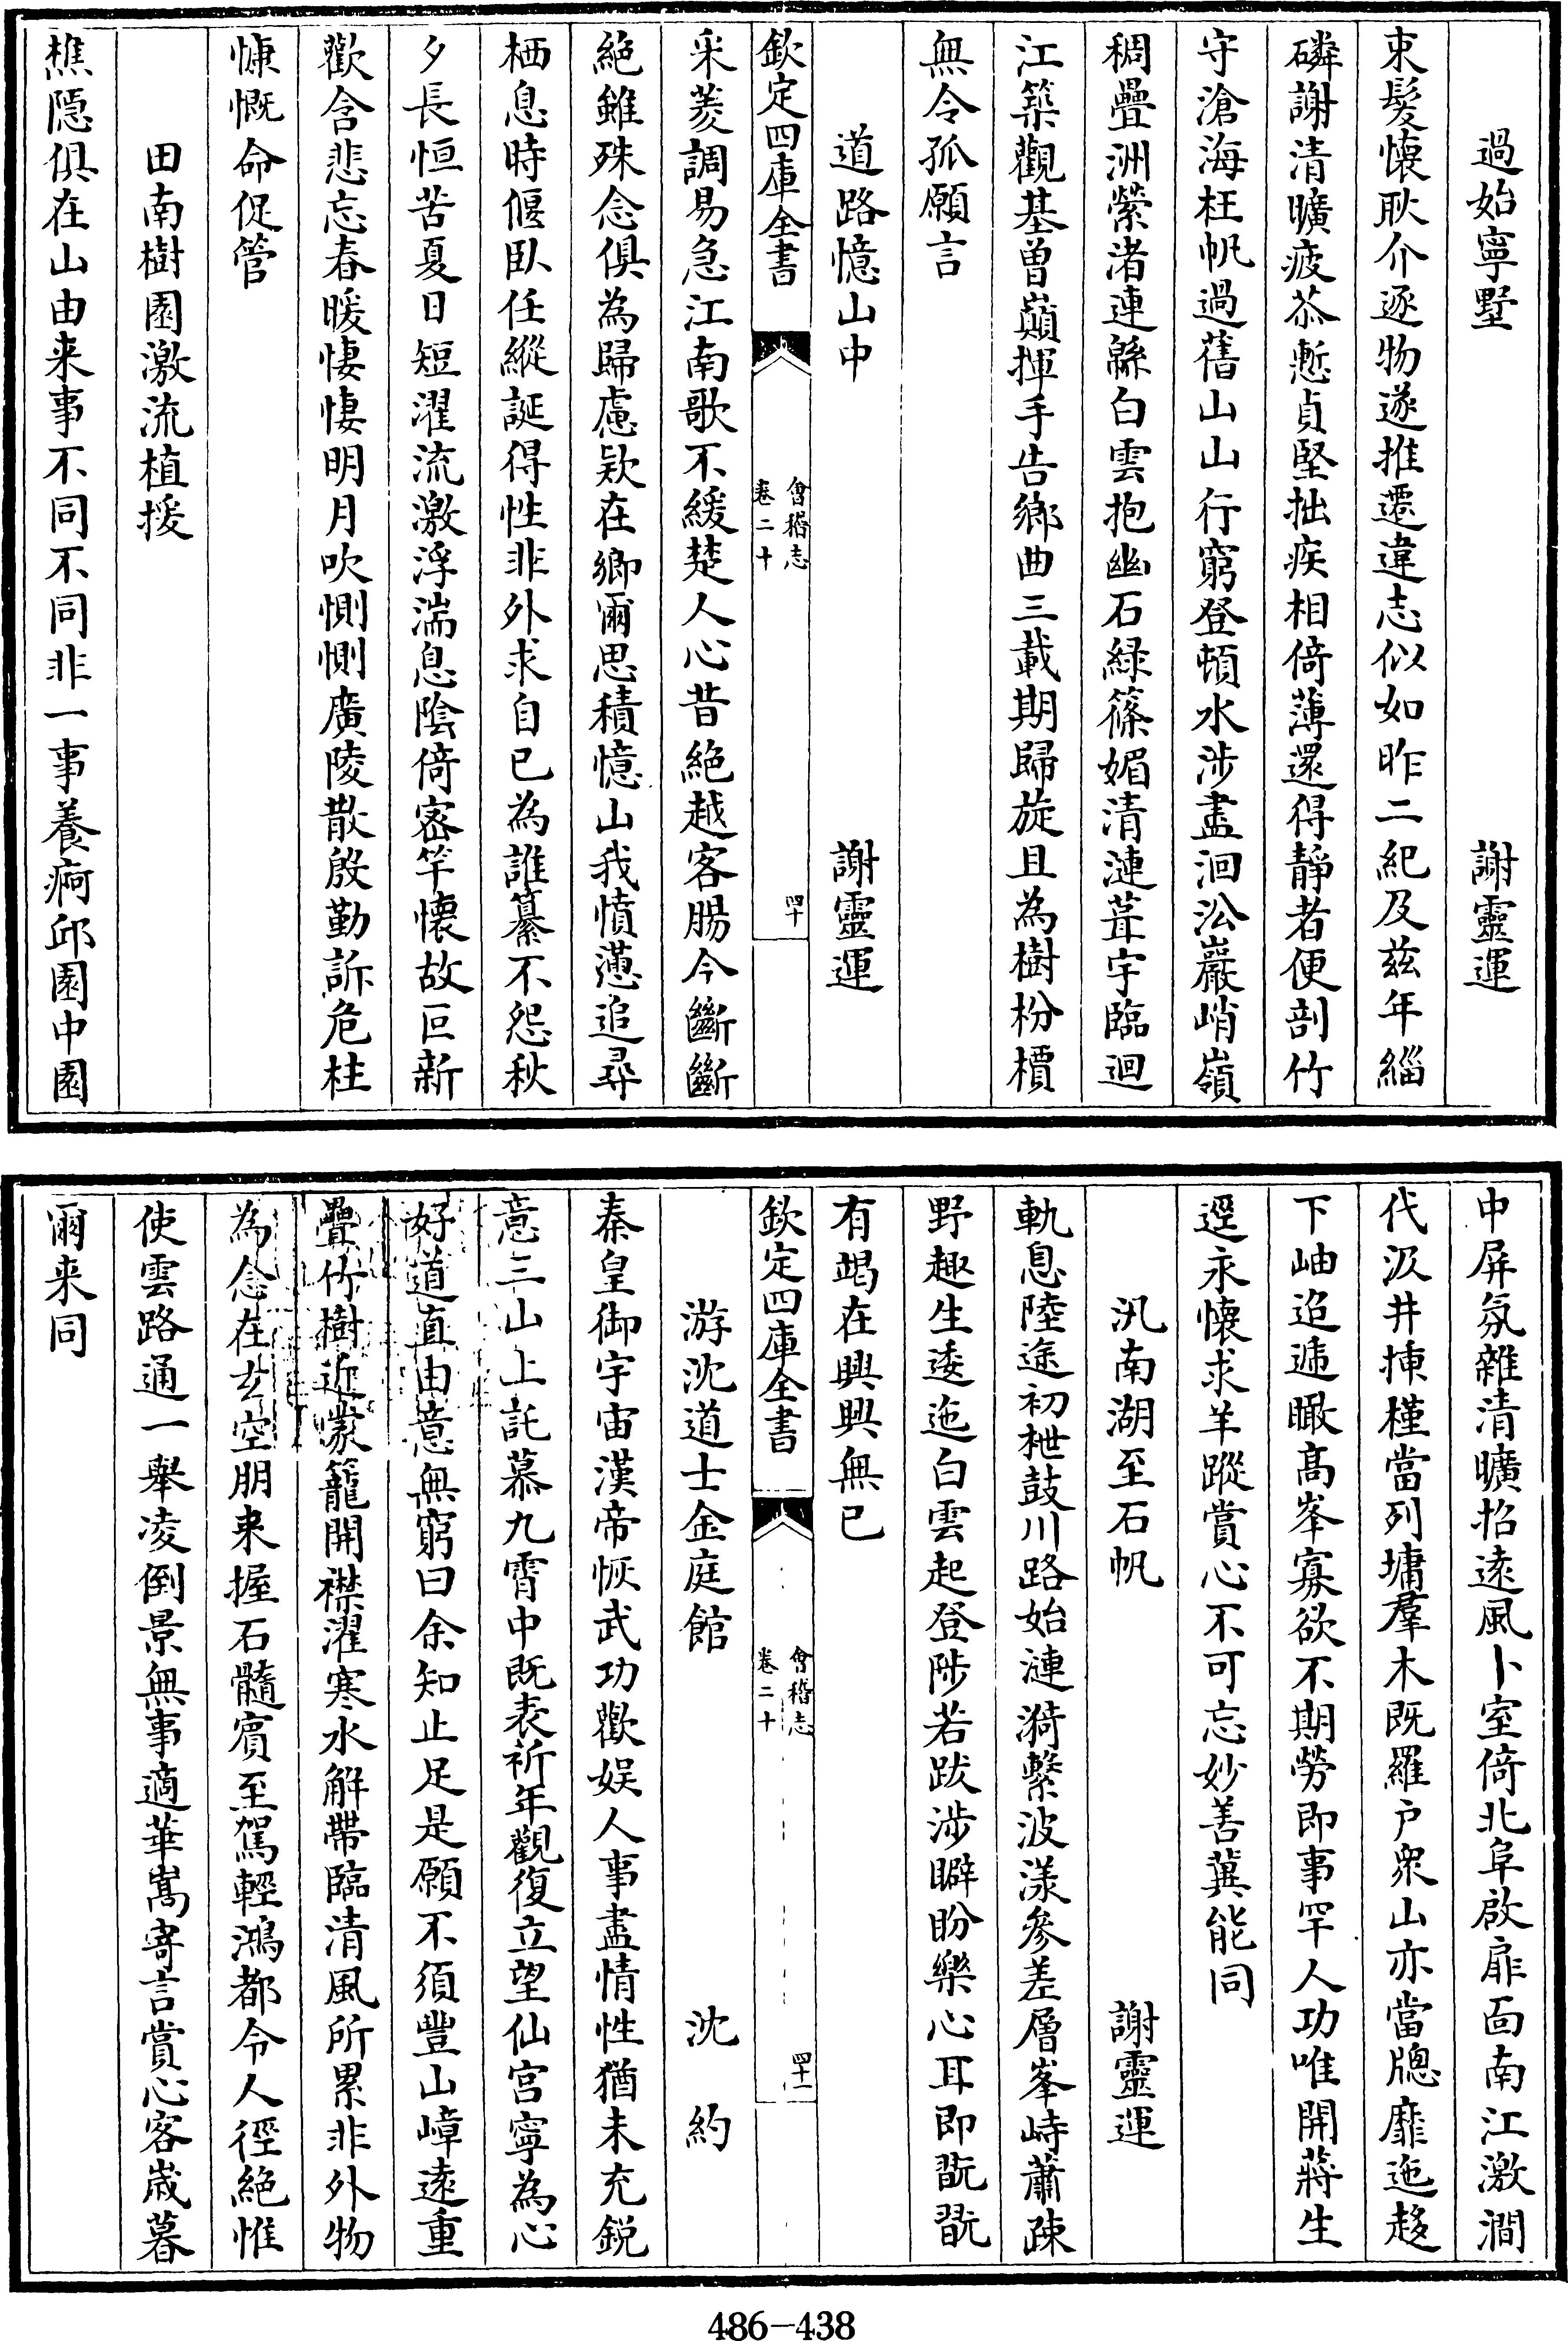 過始寧墅　謝靈運
束髮懷耿介逐物遂推遷違志似如昨二紀及兹年緇
磷謝清曠疲苶慙貞堅拙疾相倚薄還得靜者便剖竹
守滄海枉帆過舊山山行窮登頓水涉盡洄沿巖峭嶺
稠疊洲縈渚連緜白雲抱幽石緑篠媚清漣葺宇臨迴
江築觀基曽巔揮手告鄉曲三載期歸旋且為樹枌檟
無令孤願言
道路憶山中　謝靈運
欽定四庫全書　會稽志　卷二十　四十
采菱調易急江南歌不緩楚人心昔絕越客腸今斷斷
絕雖殊念俱為歸慮欵在鄉爾思積憶山我憤懣追尋
栖息時偃臥任縱誕得性非外求自已為誰纂不怨秋
夕長恒苦夏日短濯流激浮湍息陰倚密竿懷故叵新
歡含悲忘春暖悽悽明月吹惻惻廣陵散殷勤訴危柱
慷慨命促管
田南樹園激流植援
樵隱俱在山由来事不同不同非一事養痾邱園中園
中屏氛雜清曠招逺風卜室倚北阜啟扉面南江激澗
代汲井揷槿當列墉羣木既羅户衆山亦當牕靡迤趍
下岫迢遞瞰髙峯寡欲不期勞即事罕人功唯開蔣生
逕永懷求羊蹤賞心不可忘妙善冀能同
汎南湖至石帆　謝靈運
軌息陸途初枻鼓川路始漣漪繫波漾參差層峯峙蕭疎
野趣生逶迤白雲起登陟若跋涉睥盼樂心耳即翫翫
有竭在興興無已
欽定四庫全書　會稽志　卷二十　四十一
游沈道士金庭館　沈約
秦皇御宇宙漢帝恢武功歡娱人事盡情性猶未充鋭
意三山上託慕九霄中既表祈年觀復立望仙宫寧為心
好道直由意無窮曰余知止足是願不須豐山嶂逺重
疊竹樹近蒙籠開襟濯寒水解帶臨清風所累非外物
為念在𤣥空朋来握石髓賓至駕輕鴻都令人徑絕惟
使雲路通一舉凌倒景無事適華嵩寄言賞心客嵗暮
爾来同
486-438